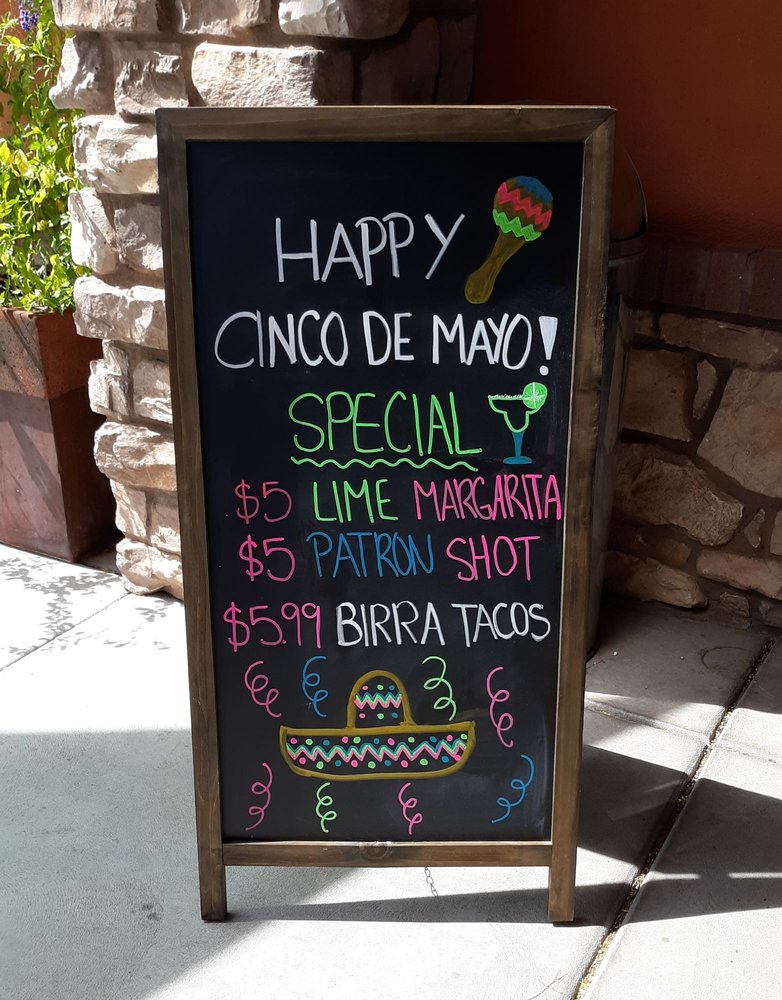 HAPPY
CINCO DE MAYO!
SPECIAL
$5 LIME MARGARITA
$5 PATRON SHOT
$5.99 BIRRA TACOS